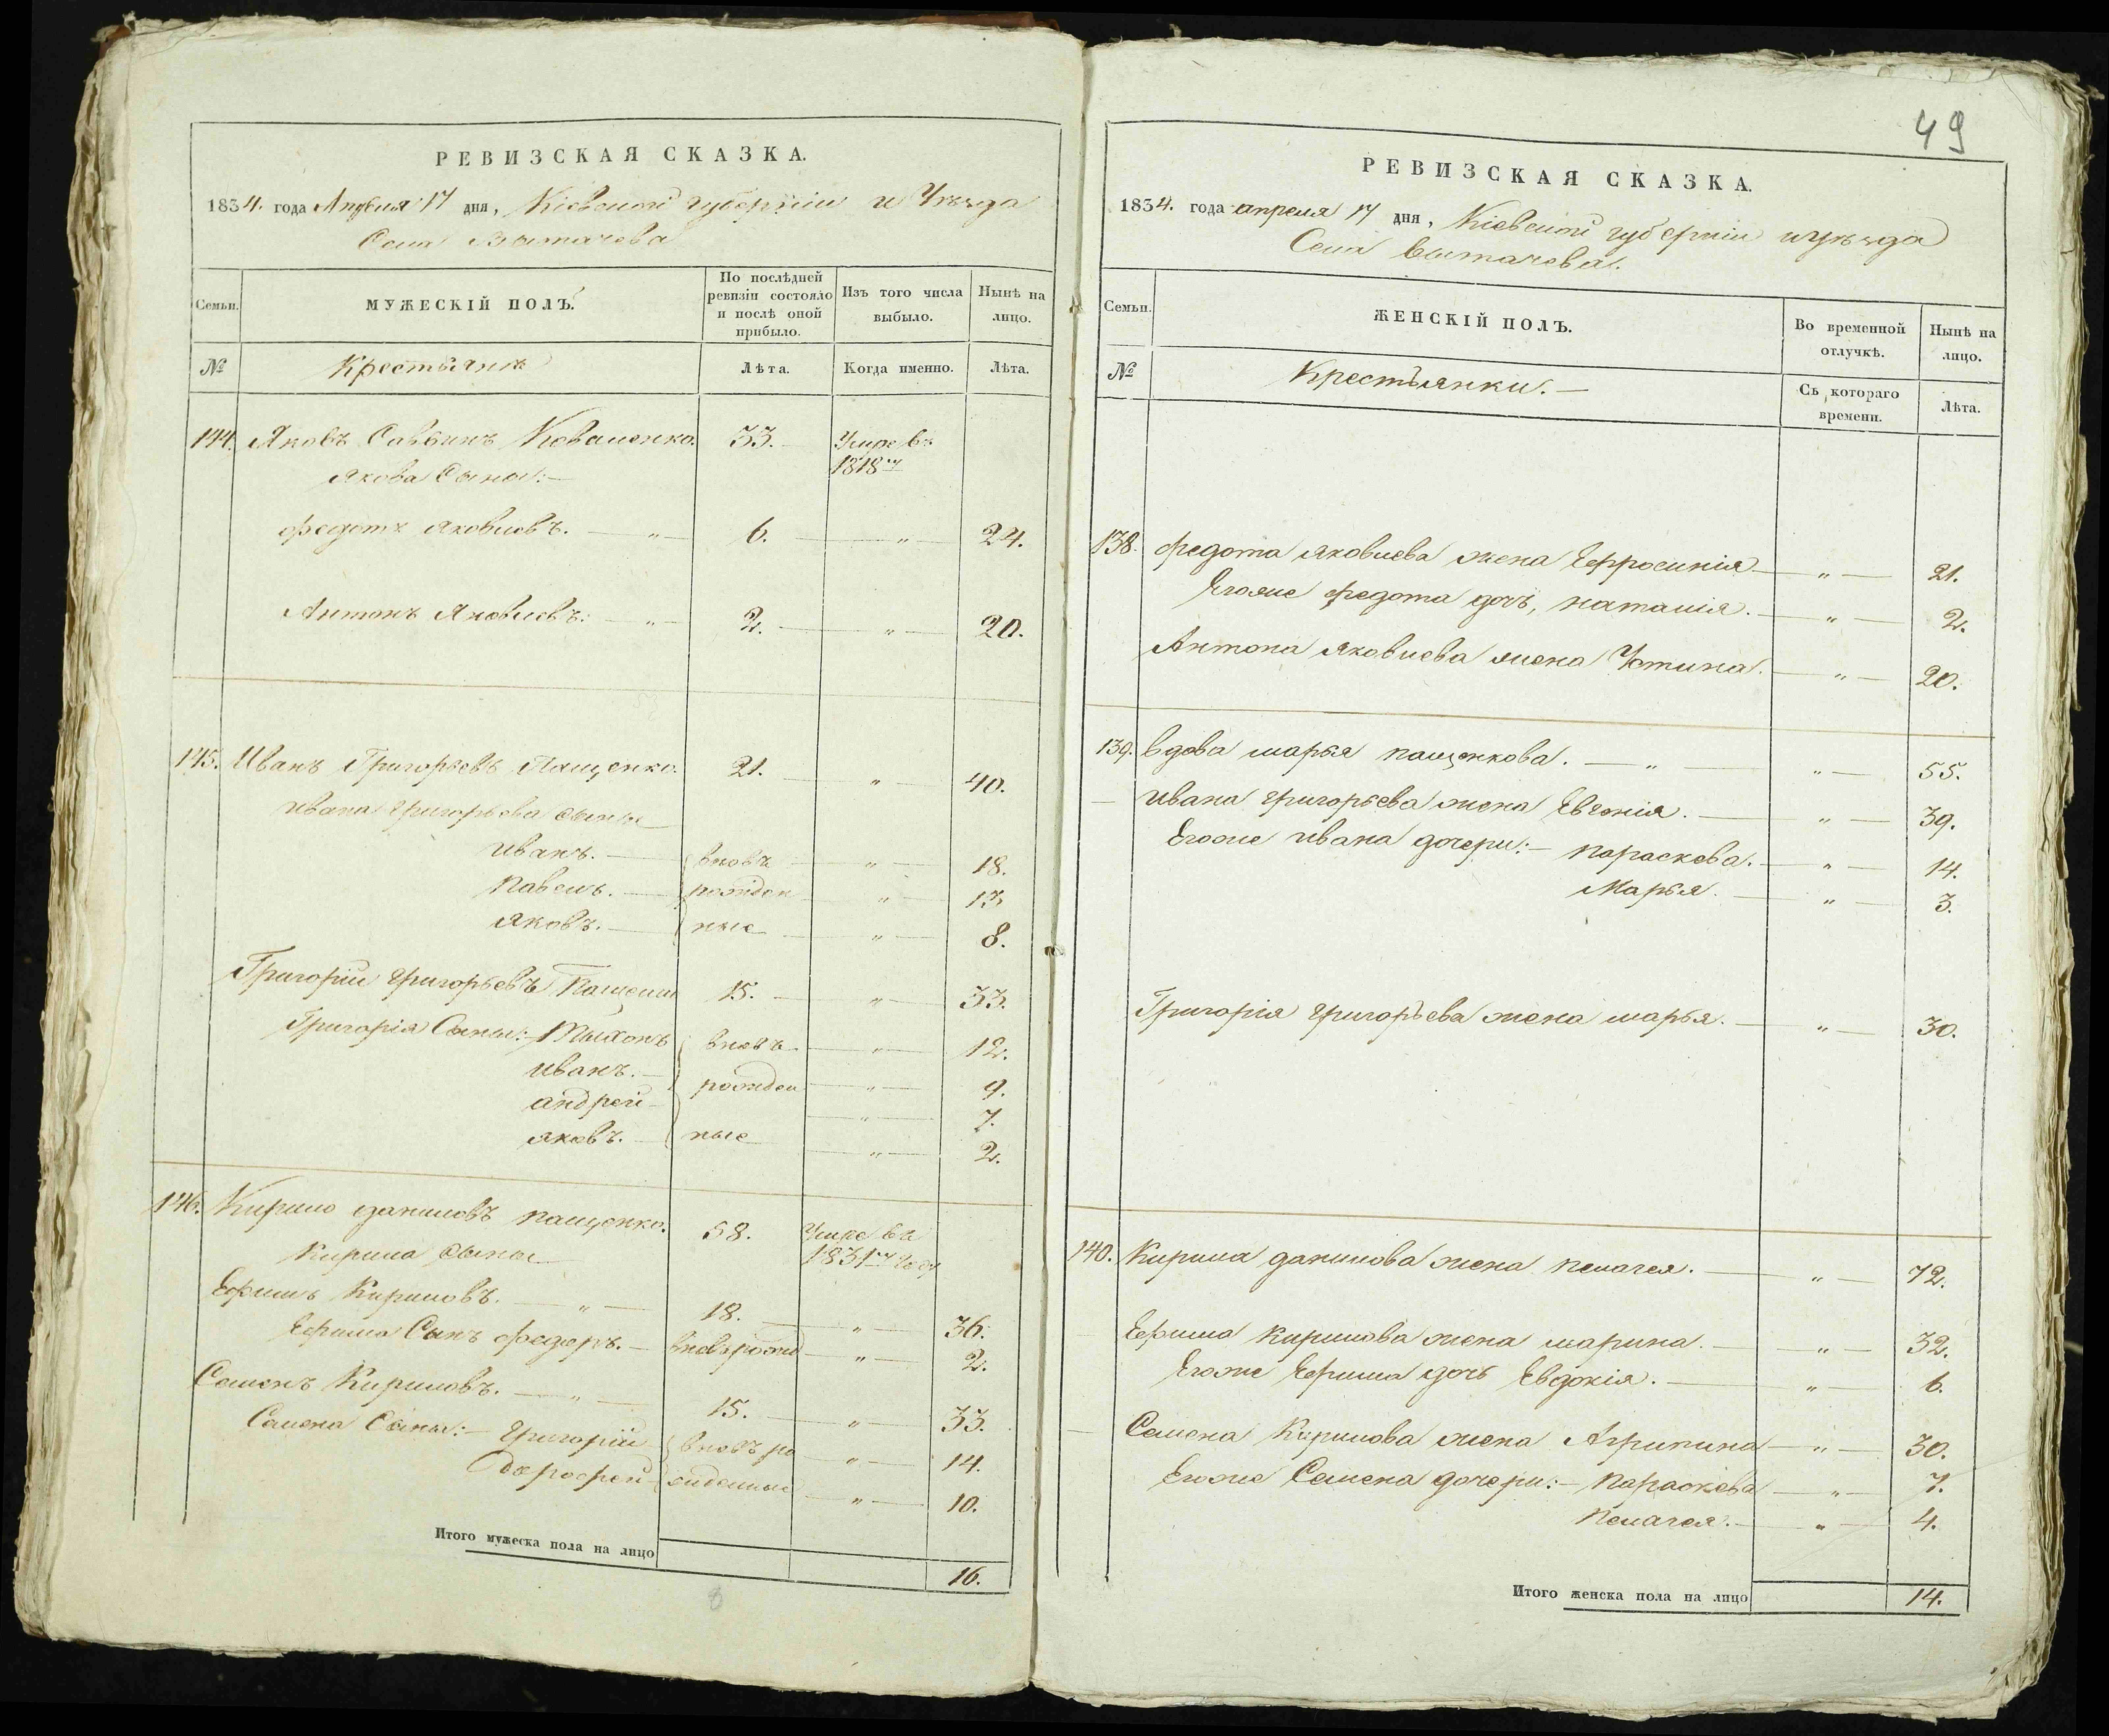 РЕВИЗСКАЯ СКАЗКА.
1834. года Апреля 17 дня, Кіевской губерніи и Уѣзда
Села Вытачева
Семьи.
МУЖЕСКІЙ ПОЛЪ.
По послѣдней ревизіи состояло и послѣ оной прибыло.
Изъ того числа выбыло.
Нынѣ на лицо.
№
Крестьянѣ
Лѣта.
Когда именно.
Лѣта.
144. Яковъ Саввинъ Коваленко. 33. Умре въ
Якова Сыны:— 1818м
Федотъ Яковлевъ. — „ — 6. — „ — 24.
Антонъ Яковлевъ: — „ — 2. — „ — 20.
145. Иванъ Григорьевъ Пащенко. 21. — „ — 40.
Ивана Григорьева сыны
Иванъ. — вновъ — „ — 18.
Павелъ. — рожден — „ — 13
Яковъ. — ные — „ — 8.
Григорій Григорьевъ 15. — „ — 33.
Григорія Сыны: Тыхонъ вновъ — „ — 12.
Иванъ. — рожден — „ — 9.
андрей — — „ — 7.
яковъ. — ные — „ — 2.
146. Кирило даниловъ пащенко. 58. Умре въ
Кирила сыны 1831м году
Ефимъ Кириловъ. — „ — 18. — „ — 36.
Ефима Сынъ федоръ. — вновърожд — „ — 2.
Семенъ Кириловъ. — „ — 15. — „ — 33.
Семена Сыны:— Григорій вновъ ро — „ — 14.
дорофей жденные — „ — 10.
Итого мужеска пола на лицо 16.
49
РЕВИЗСКАЯ СКАЗКА.
1834. года апреля 17 дня, Кіевской губерніи и уѣзда
Села Вытачева.
Семьи.
ЖЕНСКІЙ ПОЛЪ.
Во временной отлучкѣ.
Нынѣ на лицо.
№
Крестьянки.—
Съ котораго времени.
Лѣта.
138. Федота яковлева жена Ефросинія — „ — 21.
Егоже федота дочь, наталія. — „ — 2.
Антона яковлева жена Устина. — „ — 20.
139. вдова марья пащенкова. — „ — „ — 55.
Ивана григорьева жена Евгенія. — „ — 39.
Егоже ивана дочери:— параскева. — „ — 14.
Марья. — „ — 3.
Григорія григорьева жена марья. — „ — 30.
140. Кирила данилова жена пелагея. — „ — 72.
Ефима кирилова жена марина. — „ — 32.
Егоже Ефима дочь Евдокія. — „ — 6.
Семена Кирилова жена Агрипина — „ — 30.
Егоже Семена дочери:— параскева — „ — 7.
пелагея. — „ — 4.
Итого женска пола на лицо 14.